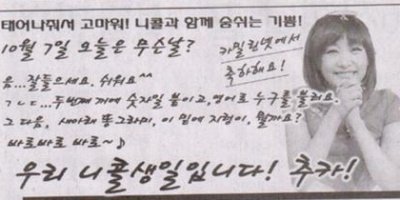 태어나줘서 고마워! 니콜과 함께 숨쉬는 기쁨!
10월 7일 오늘은 무슨날?
카밀링넷에서
축하해요!
음...잘들으세요. 쉬워요^^
ㄱㄴㄷ...두번째꺼에 숫자일 붙이고, 영어로 누구를 불러요.
그 다음, 새아래 똥그라미, 이 밑에 지렁이, 뭘까요?
바로바로 바로~♪
우리 니콜생일입니다! 추카!